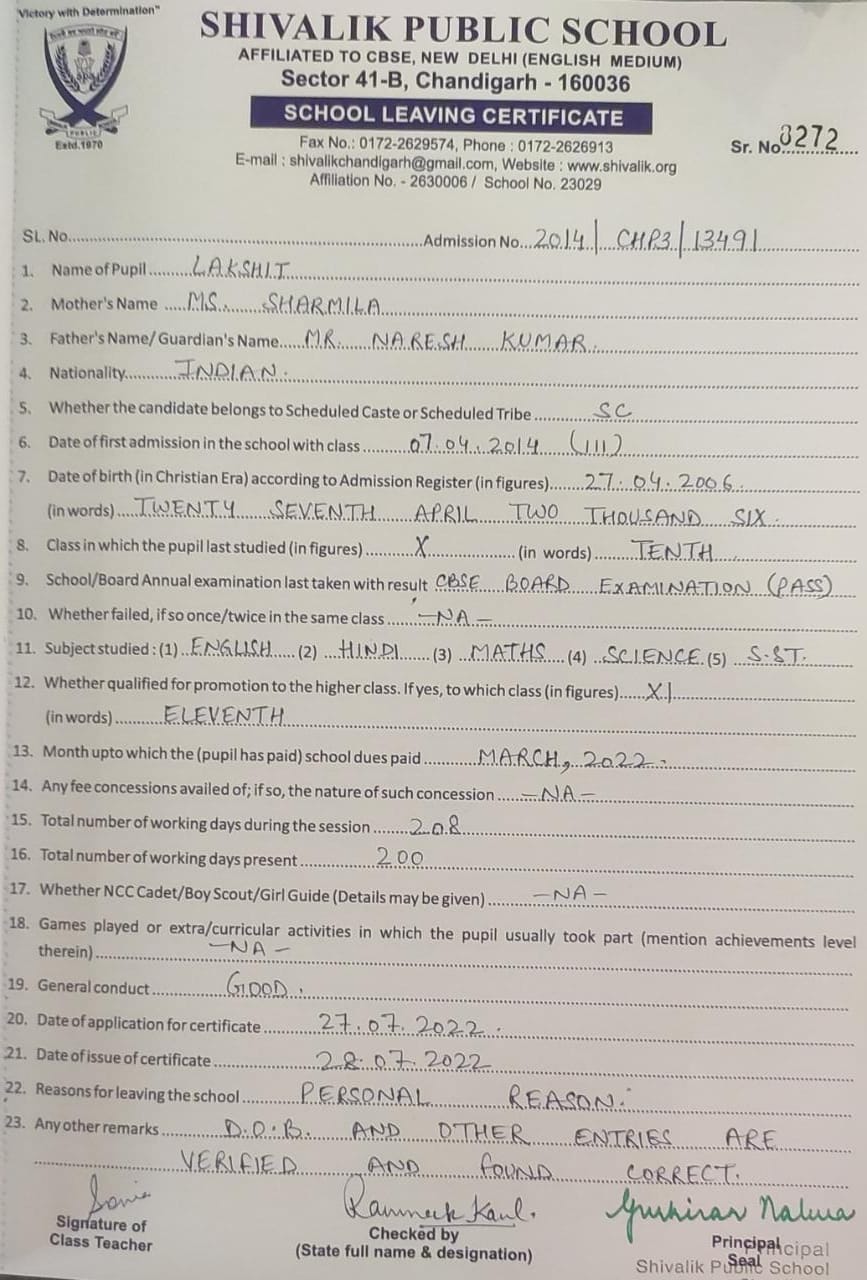 "Victory with Determination"
SHIVALIK PUBLIC SCHOOL
AFFILIATED TO CBSE, NEW DELHI (ENGLISH MEDIUM)
Sector 41-B, Chandigarh - 160036
SCHOOL LEAVING CERTIFICATE
PUBLIC
Estd.1970
Fax No.: 0172-2629574, Phone : 0172-2626913
Sr. No. 0272
E-mail : shivalikchandigarh@gmail.com, Website : www.shivalik.org
Affiliation No. - 2630006 / School No. 23029
SL. No. Admission No. 2014/ CHP3/ 13491
1. Name of Pupil LAKSHIT
2. Mother's Name MS. SHARMILA
3. Father's Name/ Guardian's Name MR. NARESH KUMAR.
4. Nationality INDIAN.
5. Whether the candidate belongs to Scheduled Caste or Scheduled Tribe SC
6. Date of first admission in the school with class 07.04.2014 (III)
7. Date of birth (in Christian Era) according to Admission Register (in figures) 27.04.2006.
(in words) TWENTY SEVENTH APRIL TWO THOUSAND SIX.
8. Class in which the pupil last studied (in figures) X (in words) TENTH
9. School/Board Annual examination last taken with result CBSE BOARD EXAMINATION (PASS)
10. Whether failed, if so once/twice in the same class -NA-
11. Subject studied : (1) ENGLISH (2) HINDI (3) MATHS (4) SCIENCE (5) S.ST.
12. Whether qualified for promotion to the higher class. If yes, to which class (in figures) XI
(in words) ELEVENTH
13. Month upto which the (pupil has paid) school dues paid MARCH, 2022.
14. Any fee concessions availed of; if so, the nature of such concession -NA-
15. Total number of working days during the session 208
16. Total number of working days present 200
17. Whether NCC Cadet/Boy Scout/Girl Guide (Details may be given) -NA-
18. Games played or extra/curricular activities in which the pupil usually took part (mention achievements level
therein) -NA-
19. General conduct GOOD.
20. Date of application for certificate 27.07.2022.
21. Date of issue of certificate 28.07.2022
22. Reasons for leaving the school PERSONAL REASON.
23. Any other remarks D.O.B. AND OTHER ENTRIES ARE
VERIFIED AND FOUND CORRECT.
Sonia
Signature of
Class Teacher
Ramneek Kaul.
Checked by
(State full name & designation)
Principal
Seal
Principal
Shivalik Public School